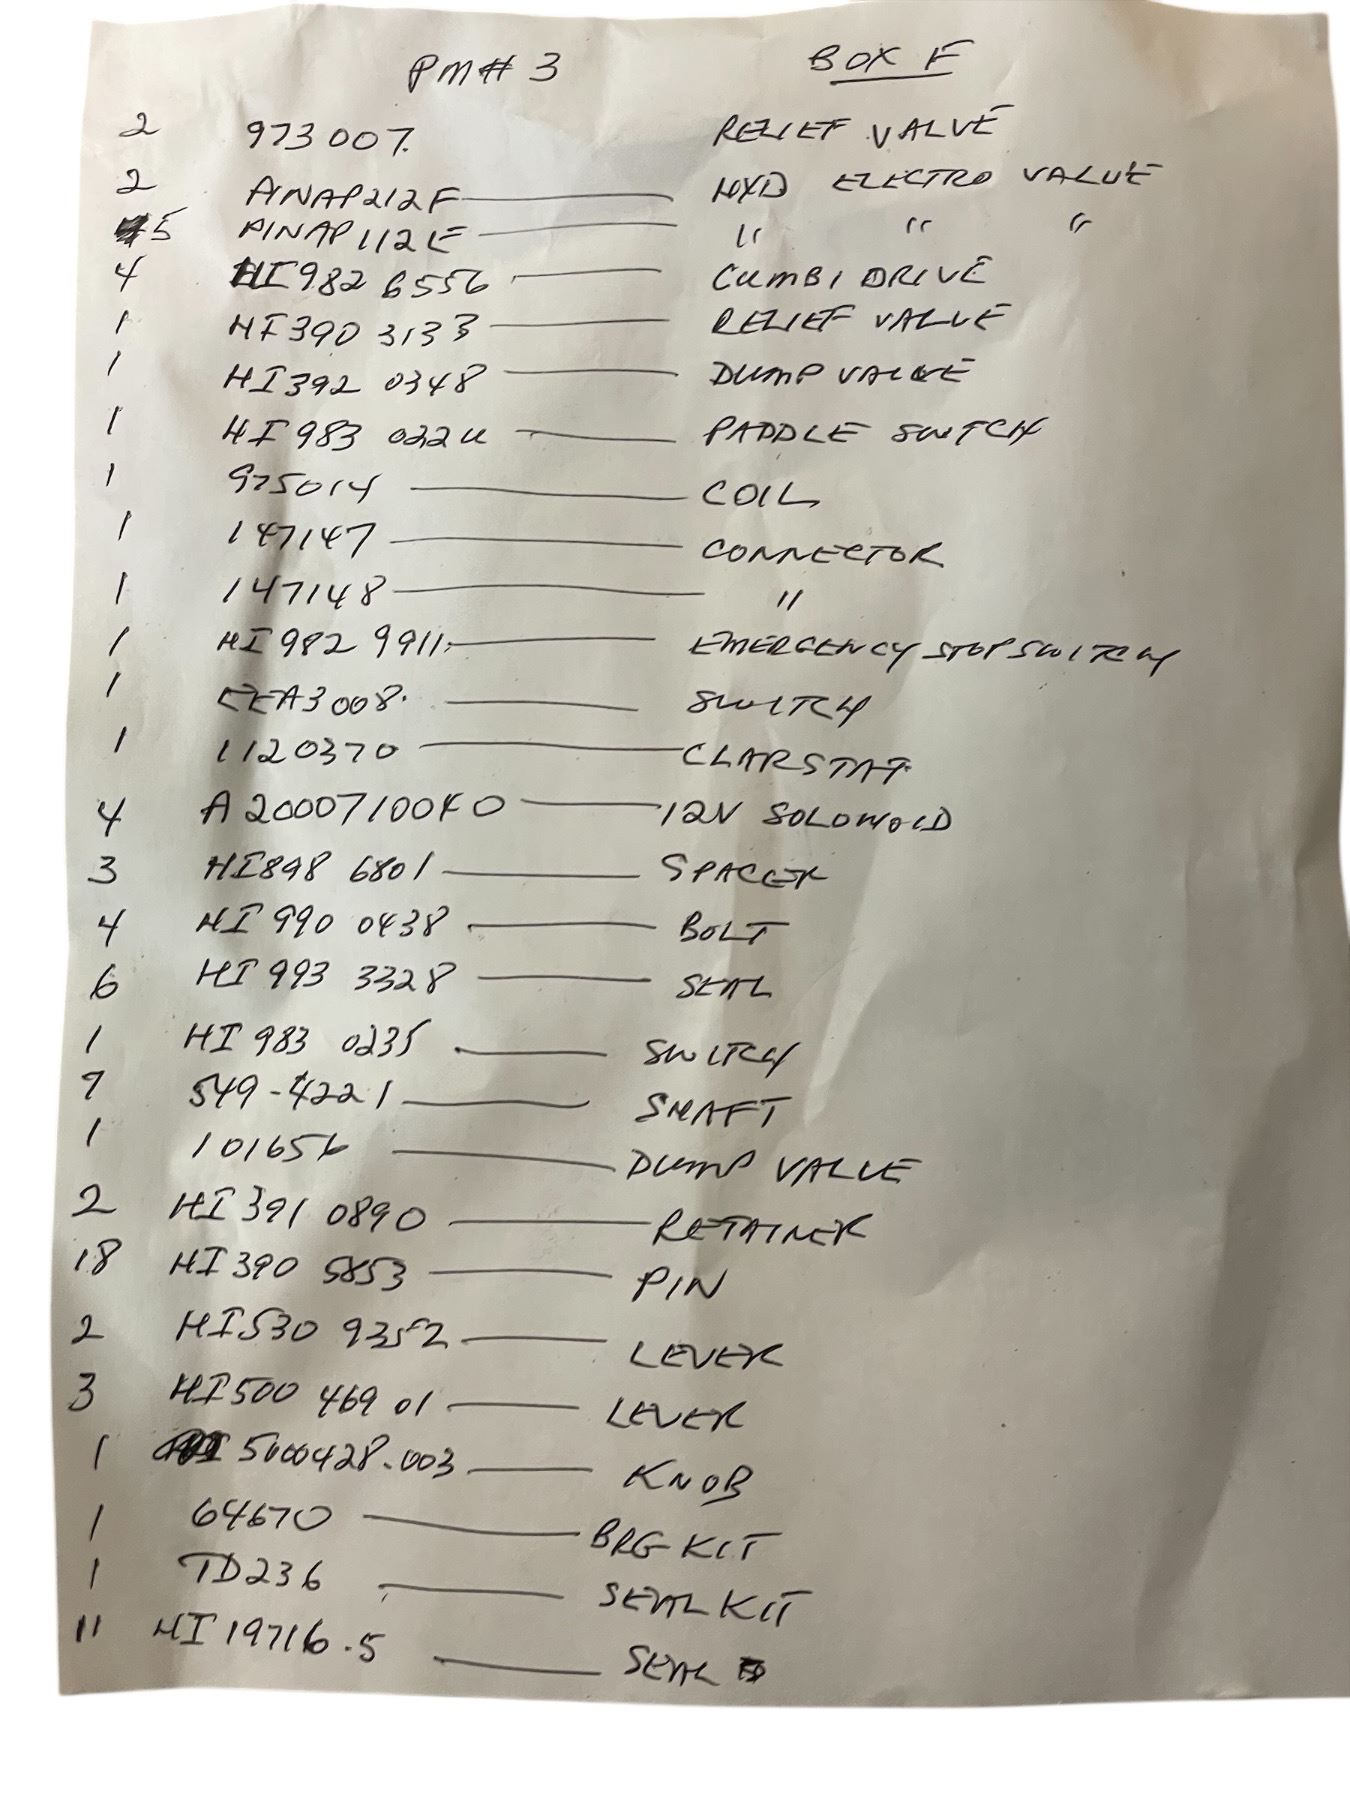 PM# 3 BOX F
2 973007. RELIEF VALVE
2 AINAP212F HYD ELECTRO VALVE
5 AINAP112E " " "
4 HI982 6556 CUMBI DRIVE
1 HI390 3133 RELIEF VALVE
1 HI392 0348 DUMP VALVE
1 HI983 PADDLE SWITCH
1 975014 COIL
1 147147 CONNECTOR
1 147148 "
1 HI982 9911. EMERGENCY STOP SWITCH
1 EEA3008. SWITCH
1 1120370 CLARSTAT
4 A2000710040 12V SOLONOID
3 HI898 6801 SPACER
4 HI990 0438 BOLT
6 HI993 3328 SEAL
1 HI983 0235 SWITCH
7 549-4221 SHAFT
1 101656 DUMP VALVE
2 HI391 0890 RETAINER
18 HI390 5853 PIN
2 HI530 9352 LEVER
3 HI500 469 01 LEVER
1 5000428.003 KNOB
1 64670 BRG KIT
1 TD236 SEAL KIT
11 HI19716.5 SEAL